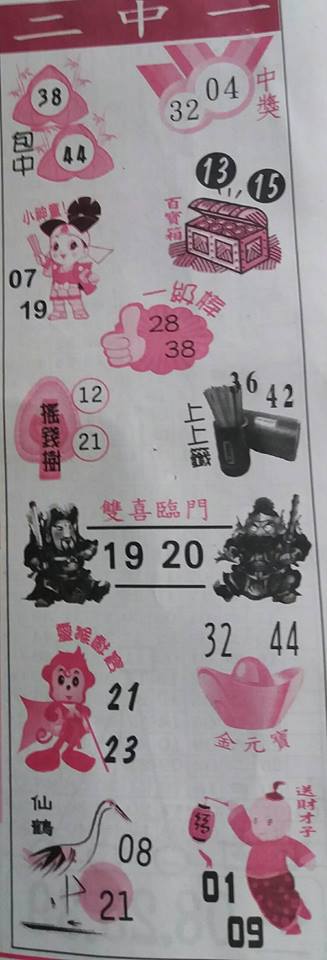 二中一
38
包中
44
32 04
中獎
小神童!
07
19
百寶箱
13 15
一級棒
28
38
搖錢樹
12
21
上上籤
36 42
雙喜臨門
19 20
靈猴獻寶
21
23
32 44
金元寶
仙鶴
08
21
送財才子
01
09